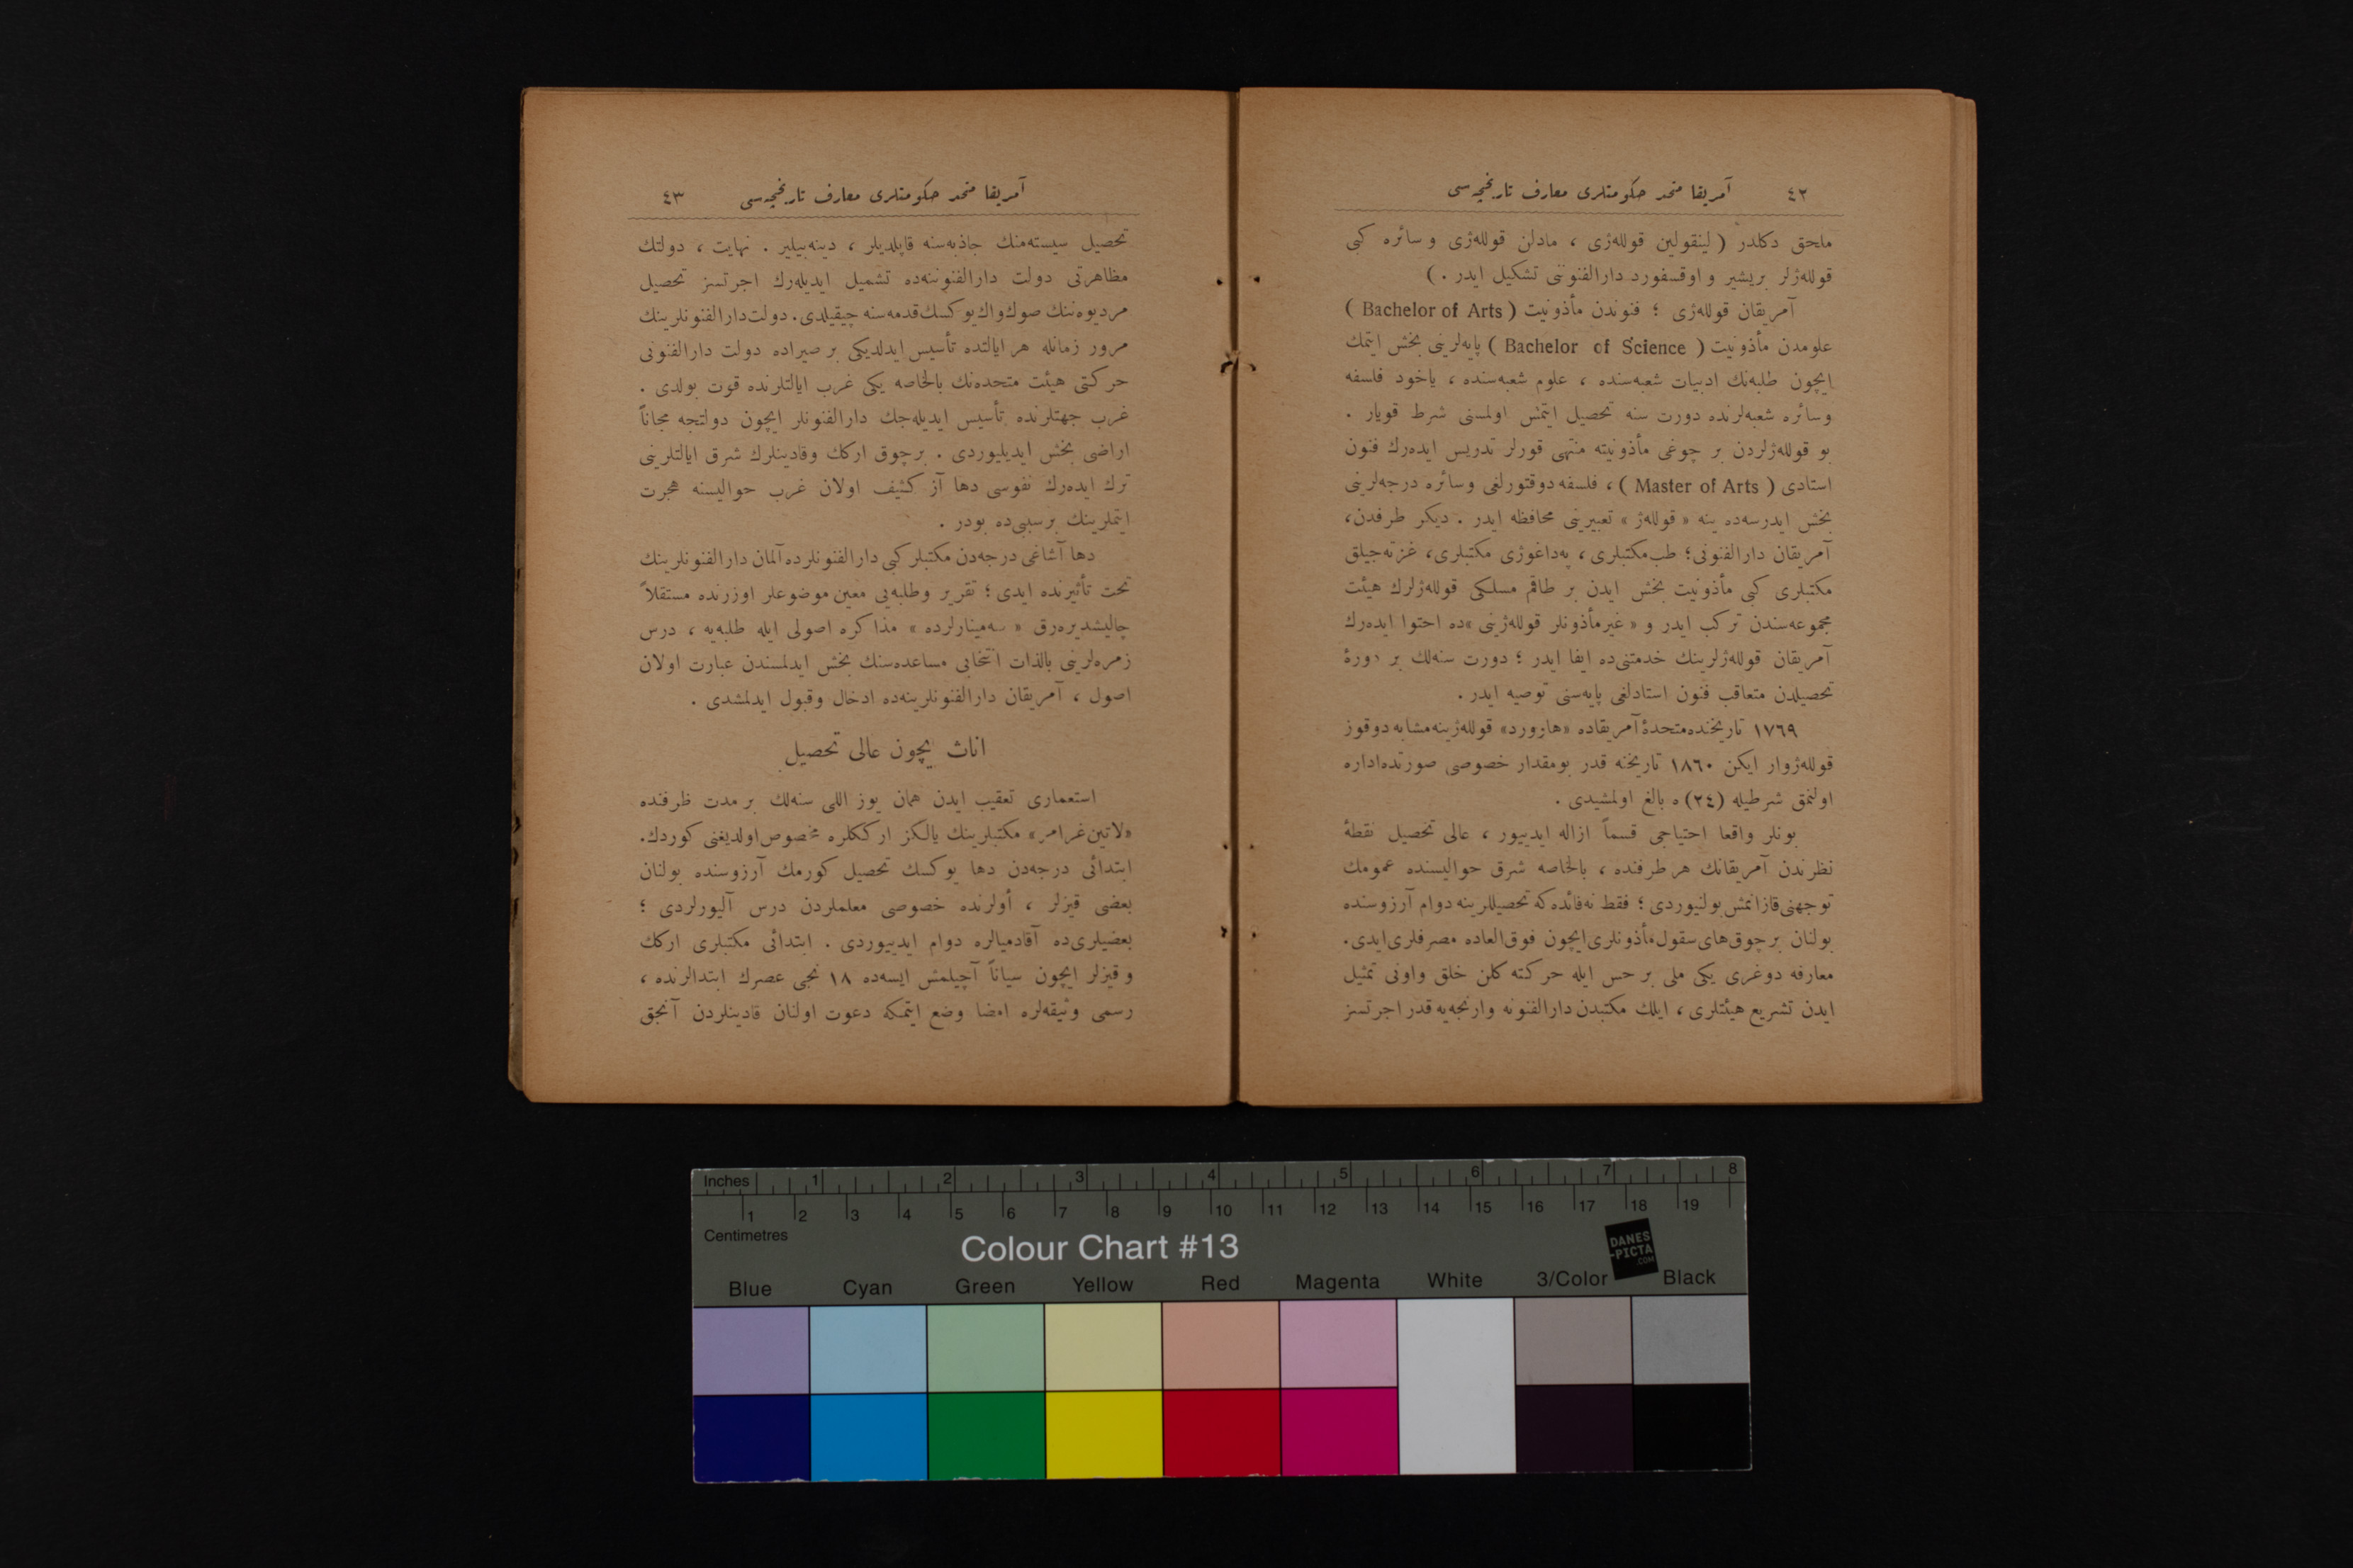 ٤٢ آمریقا متحد حکومتلری معارف تاریخچه‌سی
ملحق دکلدر ( لینقولین قولله‌ژی ، مادلن قولله‌ژی وسائره کبی
قولله‌ژلر بریشیر و اوقسفورد دارالفنوننی تشکیل ایدر . )
آمریقان قولله‌ژی ؛ فنوندن مأذونیت ( Bachelor of Arts )
علومدن مأذونیت ( Bachelor of Science ) پایه‌لرینی بخش ایتمك
ایچون طلبه‌نك ادبیات شعبه‌سنده ، علوم شعبه‌سنده ، یاخود فلسفه
وسائره شعبه‌لرنده دورت سنه تحصیل ایتمش اولمسنی شرط قویار .
بو قولله‌ژلردن بر چوغی مأذونیته منتهی قورلر تدریس ایده‌رك فنون
استادی ( Master of Arts ) ، فلسفه دوقتورلغی وسائره درجه‌لرینی
بخش ایدرسه‌ده ینه « قولله‌ژ » تعبیرینی محافظه ایدر . دیکر طرفدن،
آمریقان دارالفنونی ؛ طب مکتبلری ، په‌داغوژی مکتبلری ، غزته‌جیلق
مکتبلری کبی مأذونیت بخش ایدن بر طاقم مسلکی قولله‌ژلرك هیئت
مجموعه‌سندن ترکب ایدر و « غیرمأذونلر قولله‌ژینی »ده احتوا ایده‌رك
آمریقان قولله‌ژلرینك خدمتنی‌ده ایفا ایدر ؛ دورت سنه‌لك بر دورهٔ
تحصیلدن متعاقب فنون استادلغی پایه‌سنی توصیه ایدر .
١٧٦٩ تاریخنده متحدهٔ آمریقاده «هارورد» قولله‌ژینه مشابه دوقوز
قولله‌ژ وار ایکن ١٨٦٠ تاریخنه قدر بومقدار خصوصی صورتده اداره
اولنمق شرطیله (٢٤) ه بالغ اولمشیدی .
بونلر واقعا احتیاجی قسماً ازاله ایدییور ، عالی تحصیل نقطهٔ
نظرندن آمریقانك هر طرفنده ، بالخاصه شرق حوالیسنده عمومك
توجهنی قازانمش بولنیوردی ؛ فقط نه‌فائده که تحصیللرینه دوام آرزوسنده
بولنان برچوق های سقول مأذونلری ایچون فوق‌العاده مصرفلری ایدی.
معارفه دوغری یکی ملی بر حس ایله حرکته کلن خلق واونی تمثیل
ایدن تشریع هیئتلری ، ایلك مکتبدن دارالفنونه وارنجه‌یه قدر اجرتسز
آمریقا متحد حکومتلری معارف تاریخچه‌سی ٤٣
تحصیل سیستمه‌نك جاذبه‌سنه قاپلدیلر ، دینه‌بیلیر . نهایت ، دولتك
مظاهرتی دولت دارالفنوننه‌ده تشمیل ایدیله‌رك اجرتسز تحصیل
مردیوه‌ننك صوك واك یوکسك قدمه‌سنه چیقیلدی. دولت دارالفنونلرینك
مرور زمانله هر ایالتده تأسیس ایدلدیکی بر صیراده دولت دارالفنونی
حرکتی هیئت متحده‌نك بالخاصه یکی غرب ایالتلرنده قوت بولدی .
غرب جهتلرنده تأسیس ایدیله‌جك دارالفنونلر ایچون دولتجه مجاناً
اراضی بخش ایدیلیوردی . برچوق ارکك وقادینلرك شرق ایالتلرینی
ترك ایده‌رك نفوسی دها آز کثیف اولان غرب حوالیسنه هجرت
ایتملرینك برسببی‌ده بودر .
دها آشاغی درجه‌دن مکتبلر کبی دارالفنونلرده آلمان دارالفنونلرینك
تحت تأثیرنده ایدی ؛ تقریر وطلبه‌یی معین موضوعلر اوزرنده مستقلاً
چالیشدیره‌رق « سه‌مینارلرده » مذاکره اصولی ایله طلبه‌یه ، درس
زمره‌لرینی بالذات انتخابی مساعده‌سنك بخش ایدلمسندن عبارت اولان
اصول ، آمریقان دارالفنونلرینه‌ده ادخال وقبول ایدلمشدی .
اناث ایچون عالی تحصیل
استعماری تعقیب ایدن همان یوز اللی سنه‌لك بر مدت ظرفنده
«لاتین غرامر» مکتبلرینك یالکز ارککلره مخصوص اولدیغنی کوردك.
ابتدائی درجه‌دن دها یوکسك تحصیل کورمك آرزوسنده بولنان
بعضی قیزلر ، أولرنده خصوصی معلملردن درس آلیورلردی ؛
بعضیلری‌ده آقادمیالره دوام ایدییوردی . ابتدائی مکتبلری ارکك
و قیزلر ایچون سیاناً آچیلمش ایسه‌ده ١٨ نجی عصرك ابتدالرنده ،
رسمی وثیقه‌لره امضا وضع ایتمکه دعوت اولنان قادینلردن آنجق
Inches 1 2 3 4 5 6 7 8
1 2 3 4 5 6 7 8 9 10 11 12 13 14 15 16 17 18 19
Centimetres
Colour Chart #13
DANES
-PICTA
.COM
Blue Cyan Green Yellow Red Magenta White 3/Color Black